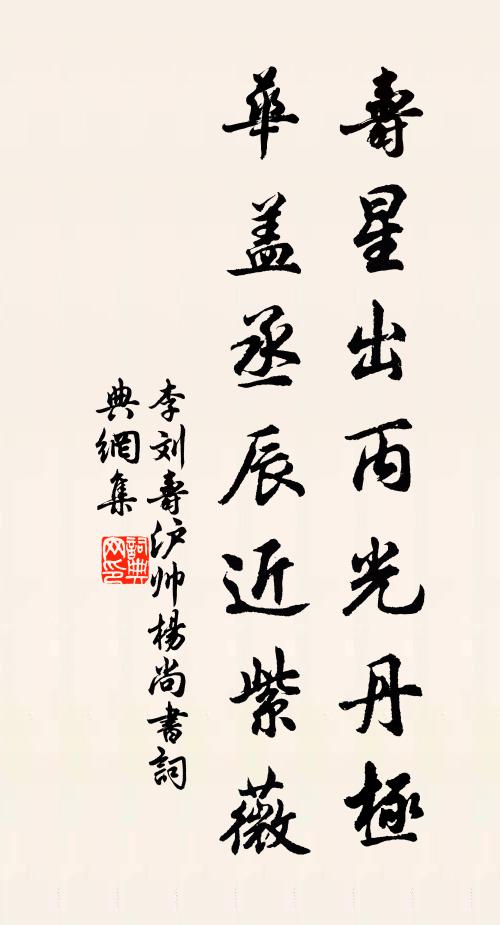 壽星出丙光丹極
華蓋丞辰近紫薇
李刘壽沪帅楊尚書詞
典網集
詞典网印